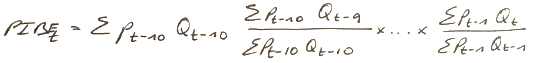 PIBE_t = Σ P_{t-10} Q_{t-10} \frac{Σ P_{t-10} Q_{t-9}}{Σ P_{t-10} Q_{t-10}} × ... × \frac{Σ P_{t-1} Q_t}{Σ P_{t-1} Q_{t-1}}